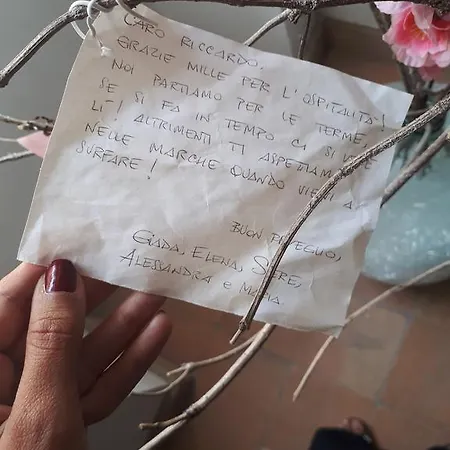 CARO RICCARDO,
GRAZIE MILLE PER L'OSPITALITÀ!
NOI PARTIAMO PER LE TERME.
SE SI FA IN TEMPO CI SI VEDE
LÌ! ALTRIMENTI TI ASPETTIAMO
NELLE MARCHE QUANDO VIENI A
SURFARE!
BUON
GIADA, ELENA,
ALESSANDRA E